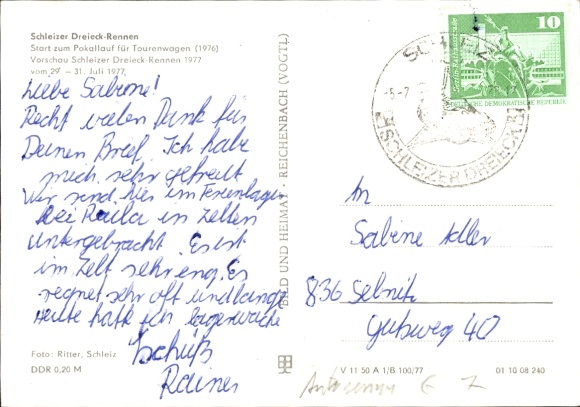 Schleizer Dreieck-Rennen
Start zum Pokallauf für Tourenwagen (1976)
Vorschau Schleizer Dreieck-Rennen 1977
vom 29. – 31. Juli 1977
Liebe Sabine!
Recht vielen Dank für
Deinen Brief. Ich habe
mich sehr gefreut
Wir sind hier im Ferienlager
bei Paula in Zelten
untergebracht. Es ist
im Zelt sehr eng. Es
regnet sehr oft und lange
Heute hatte ich Lagerwache
Tschüß
Rainer
Foto: Ritter, Schleiz
DDR 0,20 M
BILD UND HEIMAT · REICHENBACH (VOGTL)
10
Berlin, Rathausstraße
DEUTSCHE DEMOKRATISCHE REPUBLIK
SCHLEIZ
SCHLEIZER DREIECK
An
Sabine Adler
836 Sebnitz
Gutsweg 40
V 11 50 A 1/B 100/77
01 10 08 240